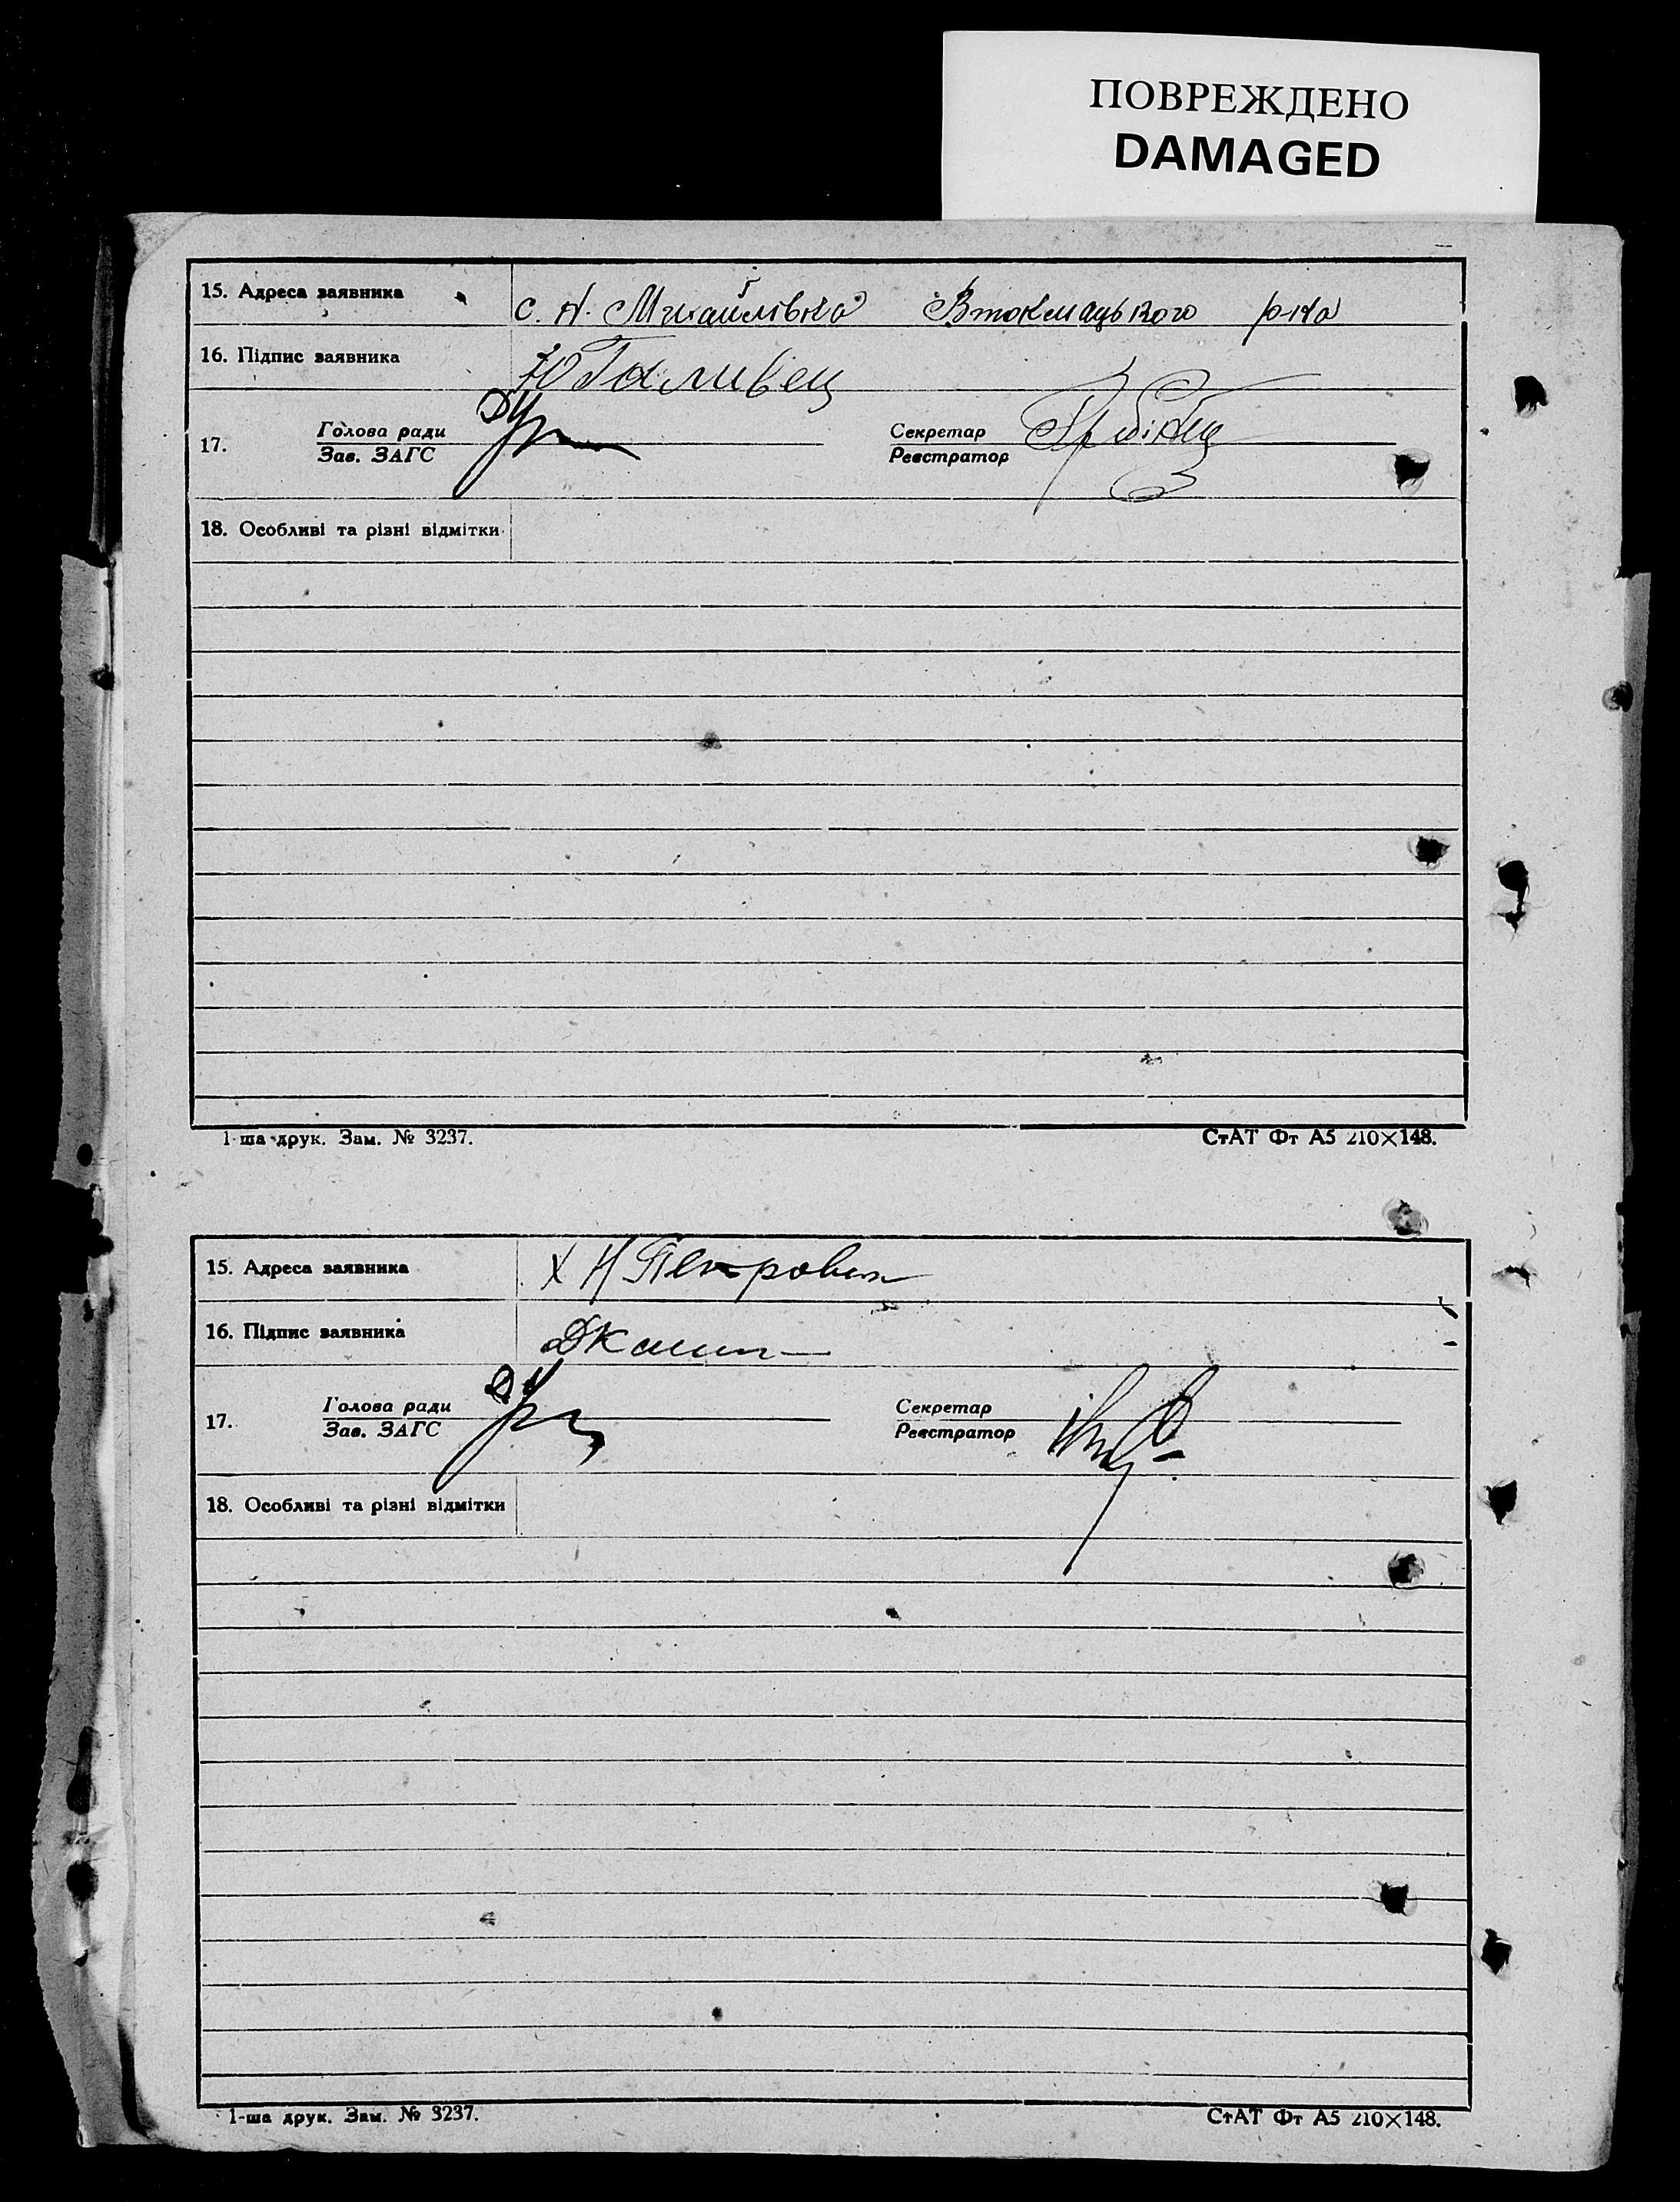 ПОВРЕЖДЕНО
DAMAGED
15. Адреса заявника с. Н. Михайлівка Втокмацького р-на
16. Підпис заявника Ю Галивец
Голова ради Секретар
17.
Зав. ЗАГС Реєстратор
18. Особливі та різні відмітки
1-ша друк. Зам. № 3237. СтАТ Фт А5 210×148.
15. Адреса заявника х Н Петровен
16. Підпис заявника
Голова ради Секретар
17.
Зав. ЗАГС Реєстратор
18. Особливі та різні відмітки
1-ша друк. Зам. № 3237. СтАТ Фт А5 210×148.